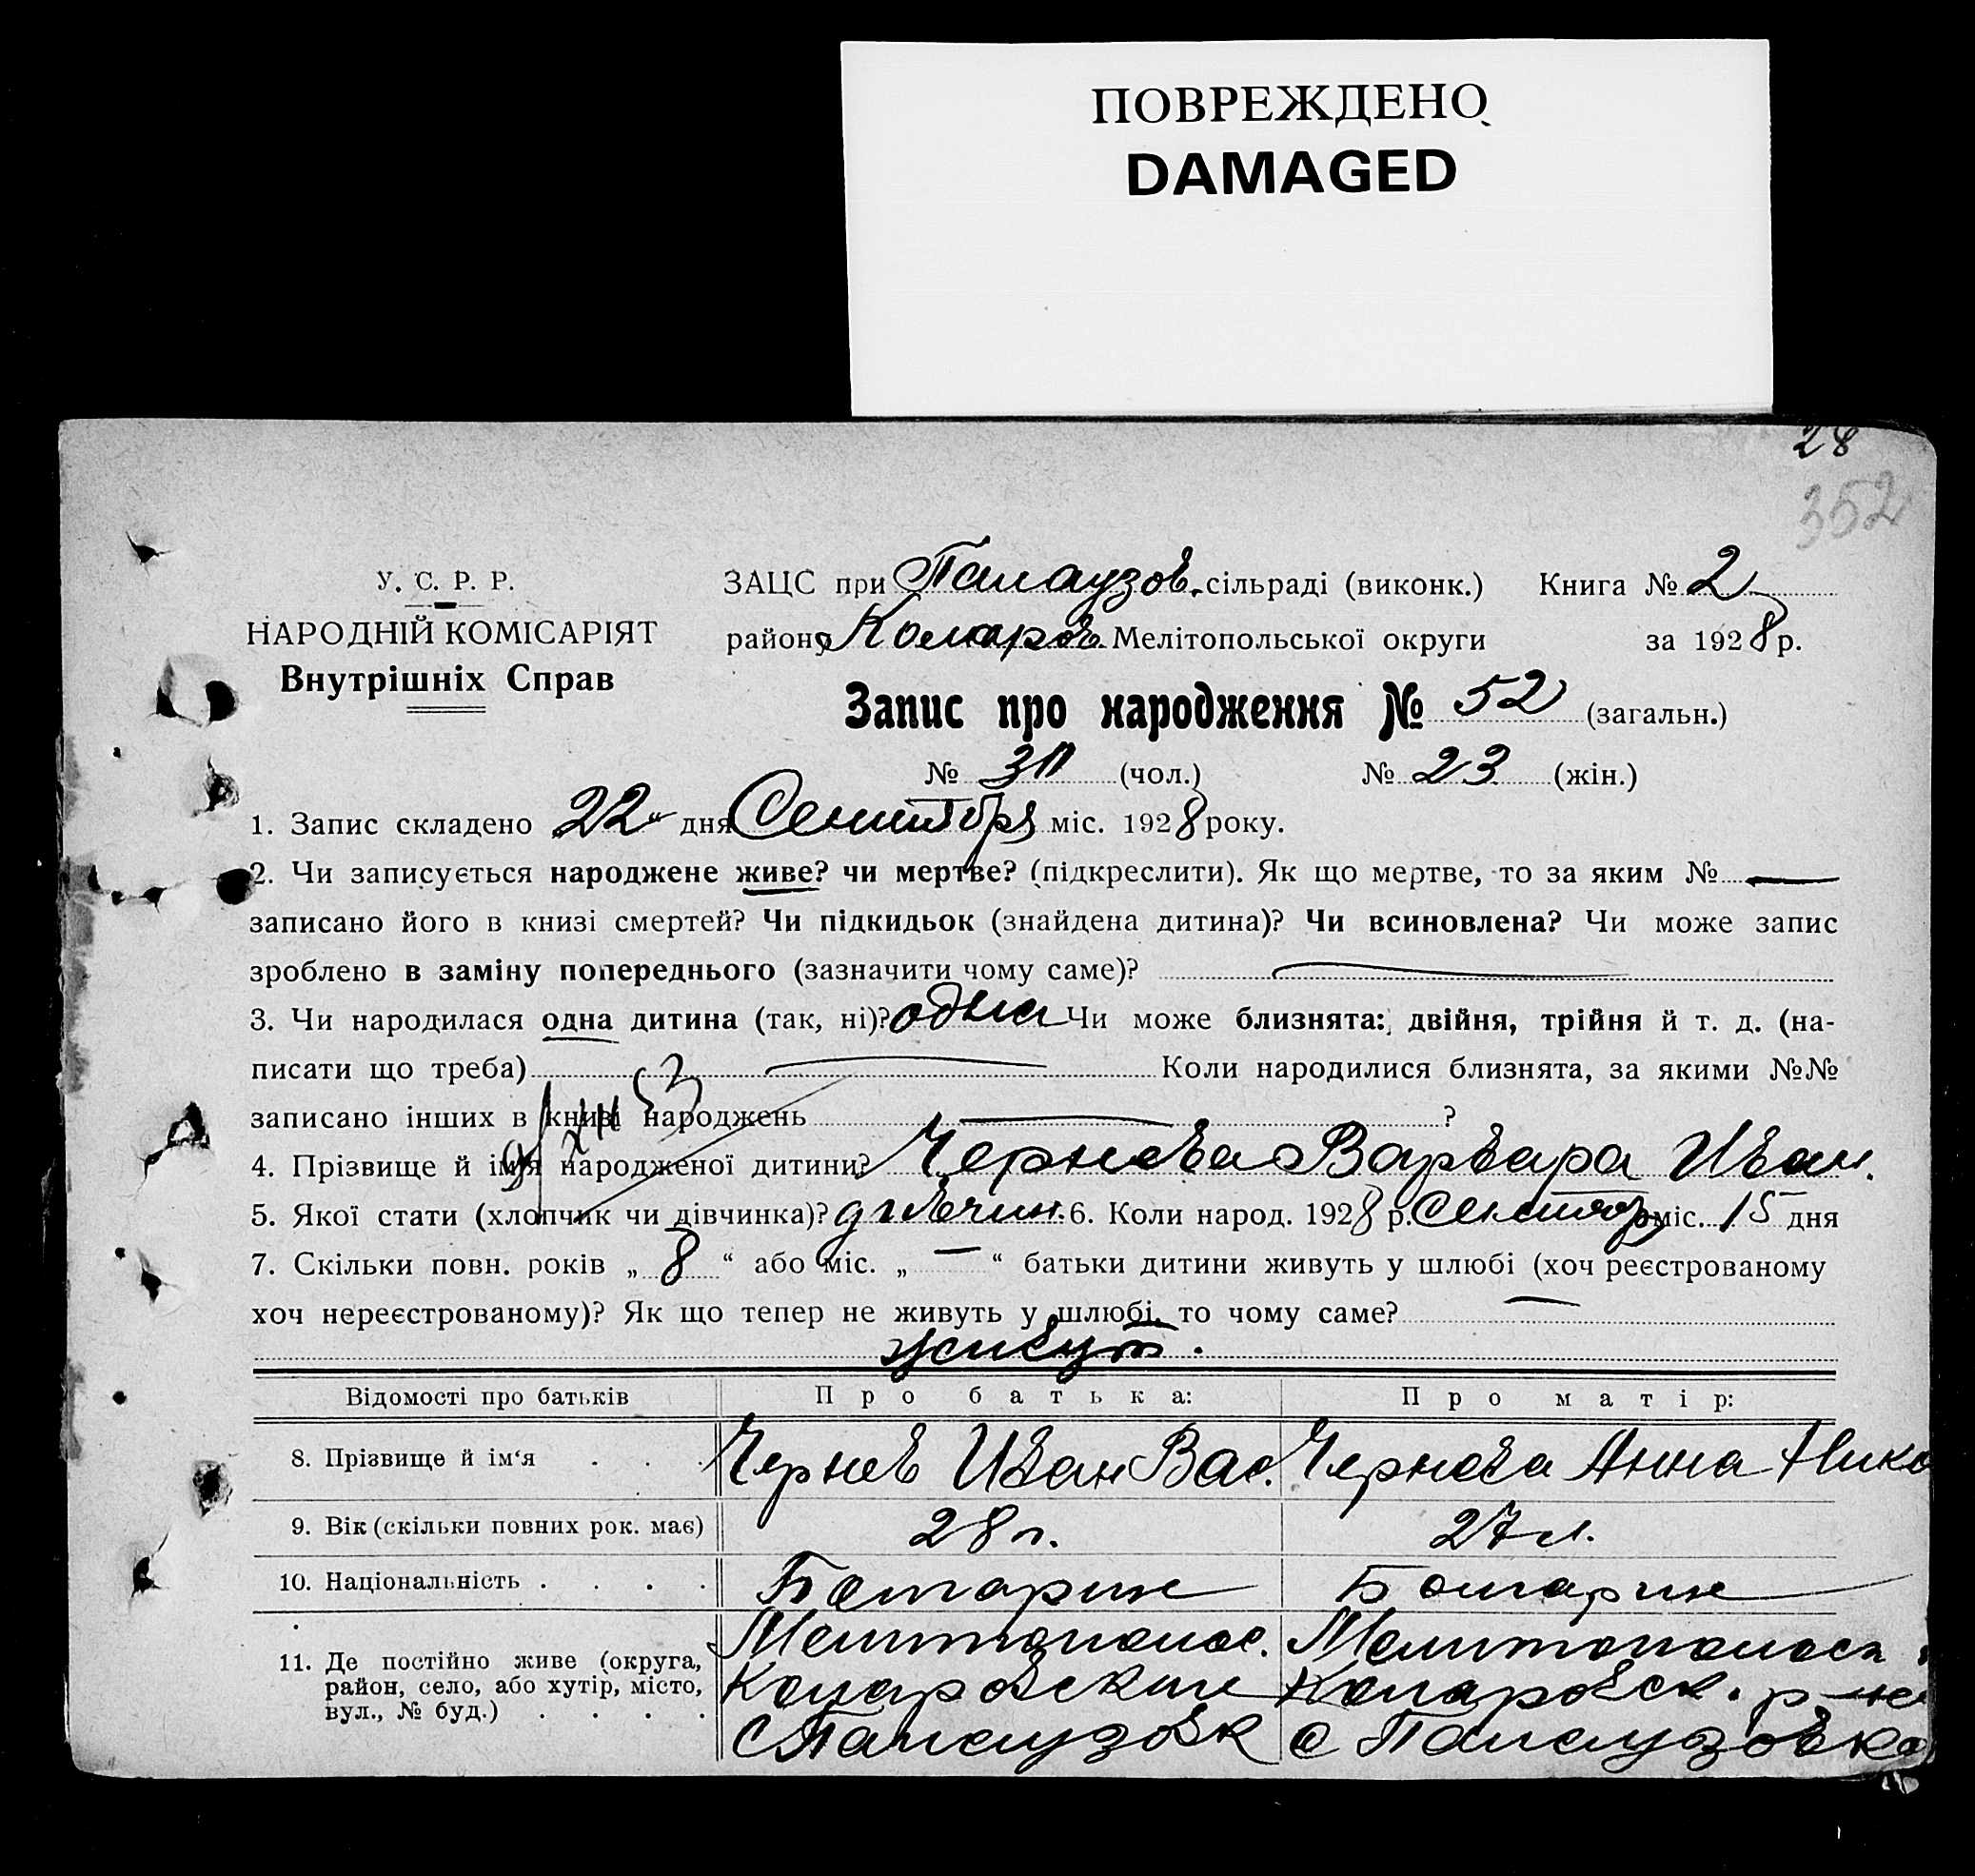 ПОВРЕЖДЕНО
DAMAGED
28
352
У. С. Р. Р.
НАРОДНІЙ КОМІСАРІЯТ
Внутрішніх Справ
ЗАЦС при Палаузов. сільраді (виконк.) Книга № 2
району Комаров. Мелітопольської округи за 1928 р.
Запис про народження № 52 (загальн.)
№ (чол.) № 23 (жін.)
1. Запис складено „22“ дня Сентября міс. 1928 року.
2. Чи записується народжене живе? чи мертве? (підкреслити). Як що мертве, то за яким № —
записано його в книзі смертей? Чи підкидьок (знайдена дитина)? Чи всиновлена? Чи може запис
зроблено в заміну попереднього (зазначити чому саме)? —
3. Чи народилася одна дитина (так, ні)? одна Чи може близнята: двійня, трійня й т. д. (на-
писати що треба) — Коли народилися близнята, за якими №№
записано інших в книзі народжень — ?
4. Прізвище й ім'я народженої дитини? Чернева Варвара Иван.
5. Якої стати (хлопчик чи дівчинка)? дівчин. 6. Коли народ. 1928 р. Сентябр міс. 15 дня
7. Скільки повн. років „ 8 “ або міс. „ — “ батьки дитини живуть у шлюбі (хоч реєстрованому
хоч нереєстрованому)? Як що тепер не живуть у шлюбі, то чому саме? —
живут.
Відомості про батьків Про батька: Про матір:
8. Прізвище й ім'я . . . Чернев Иван Вас. Чернева Анна Нико
9. Вік (скільки повних рок. має) 28 л. 27 л.
10. Національність . . . . Болгарин Болгарин
11. Де постійно живе (округа, Мелитополос. Мелитополоск
район, село, або хутір, місто, Комаровский Комаровск. р-н
вул., № буд.) . . . . с Палаузовк с Палаузовка